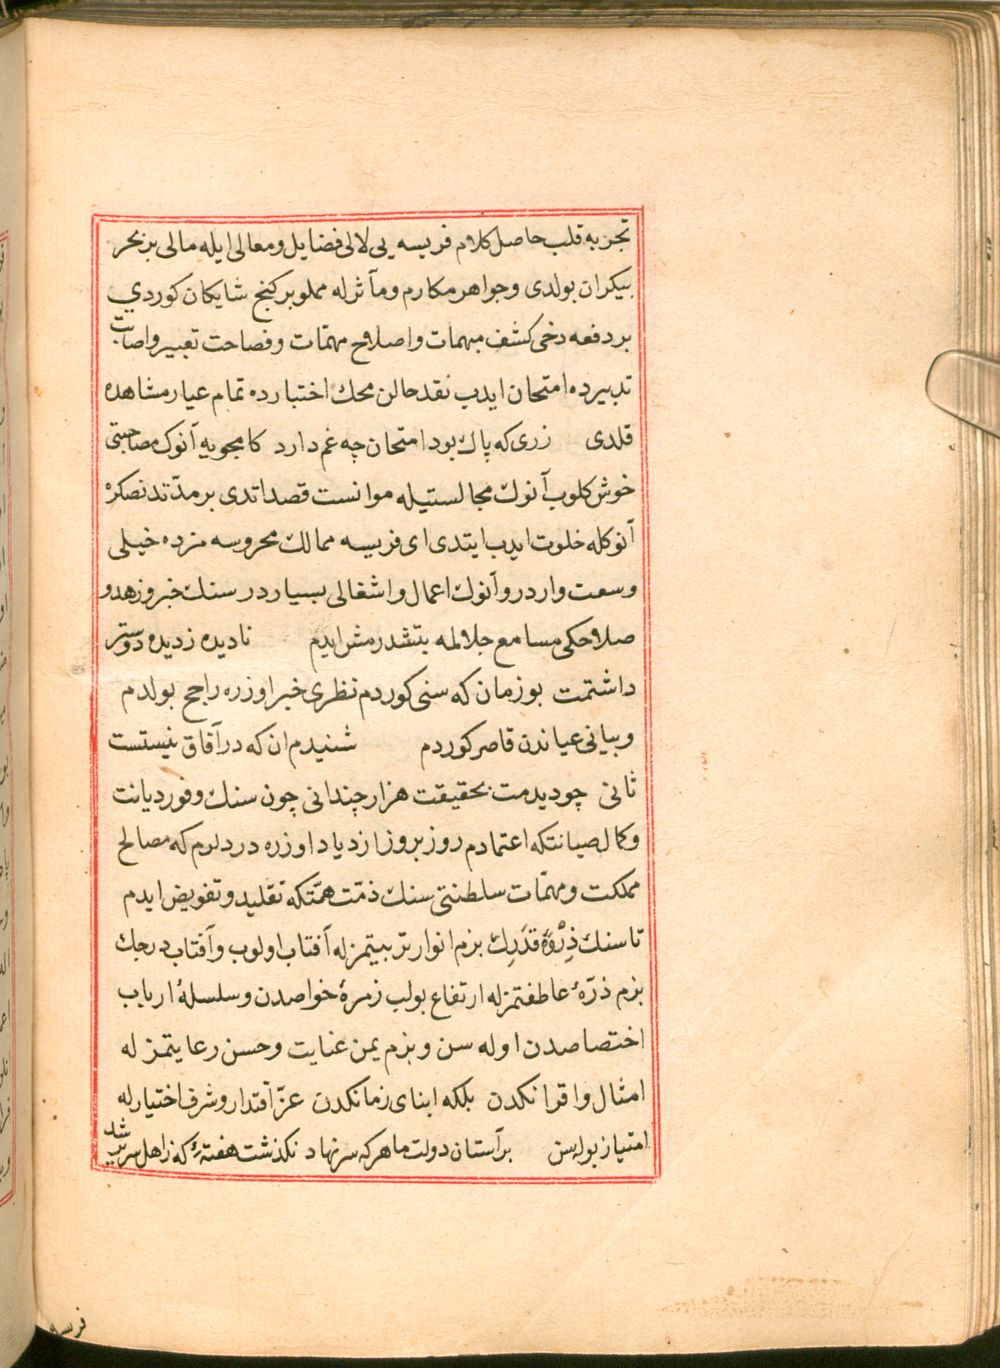 تجربه قلب حاصل كلام فريسه يى لالئ فضايل ومعالى ايله مالى بر بحر
بيكران بولدى وجواهر مكارم ومآثرله مملو بر كنج شايكان كوردى
بر دفعه دخى كشف مبهمات واصلاح مهمّات وفصاحت تعبير واصابت
تدبيرده امتحان ايدب نقد حالن محك اختبارده تمام عيار مشاهده
قلدى زرى كه پاك بود امتحان چه غم دارد كامجويه آنوك مصاحبتى
خوش كلوب آنوك مجالستيله موانست قصد اتدى بر مدّتدنصكره
آنوكله خلوت ايدب ايتدى اى فريسه ممالك محروسه مزده خيلى
وسعت واردر وآنوك اعمال واشغالى بسيار در سنك خبر وزهد و
صلاحكى مسامع جلالمه يتشدرمش ايدم ناديده زديده دوستر
داشتمت بو زمان كه سنى كوردم نظرى خبر اوزره راجح بولدم
وبيانى عياندن قاصر كوردم شنيدم ان كه در آفاق نيستت
ثانى چو ديدمت بحقيقت هزار چندانى چون سنك وفور ديانت
وكمال صيانتكه اعتمادم روز بروز ازدياد اوزره در دلرم كه مصالح
مملكت ومهمّات سلطنتى سنك ذمّت همّتكه تقليد وتفويض ايدم
تا سنك ذرّهٔ قدرك بزم انوار تربيتمزله آفتاب اولوب وآفتاب درجك
بزم ذرّهٔ عاطفتمزله ارتفاع بولب زمرهٔ خواصدن وسلسلهٔ ارباب
اختصاصدن اوله سن وبزم يمن عنايت وحسن رعايتمزله
امثال واقرانكدن بلكه ابناى زمانكدن عزّ اقتدار وشرف اختيارله
امتياز بولسن بر آستان دولت ما هركه سر نهاد نكذشت هفتهٔ كه ز اهل سرير شد